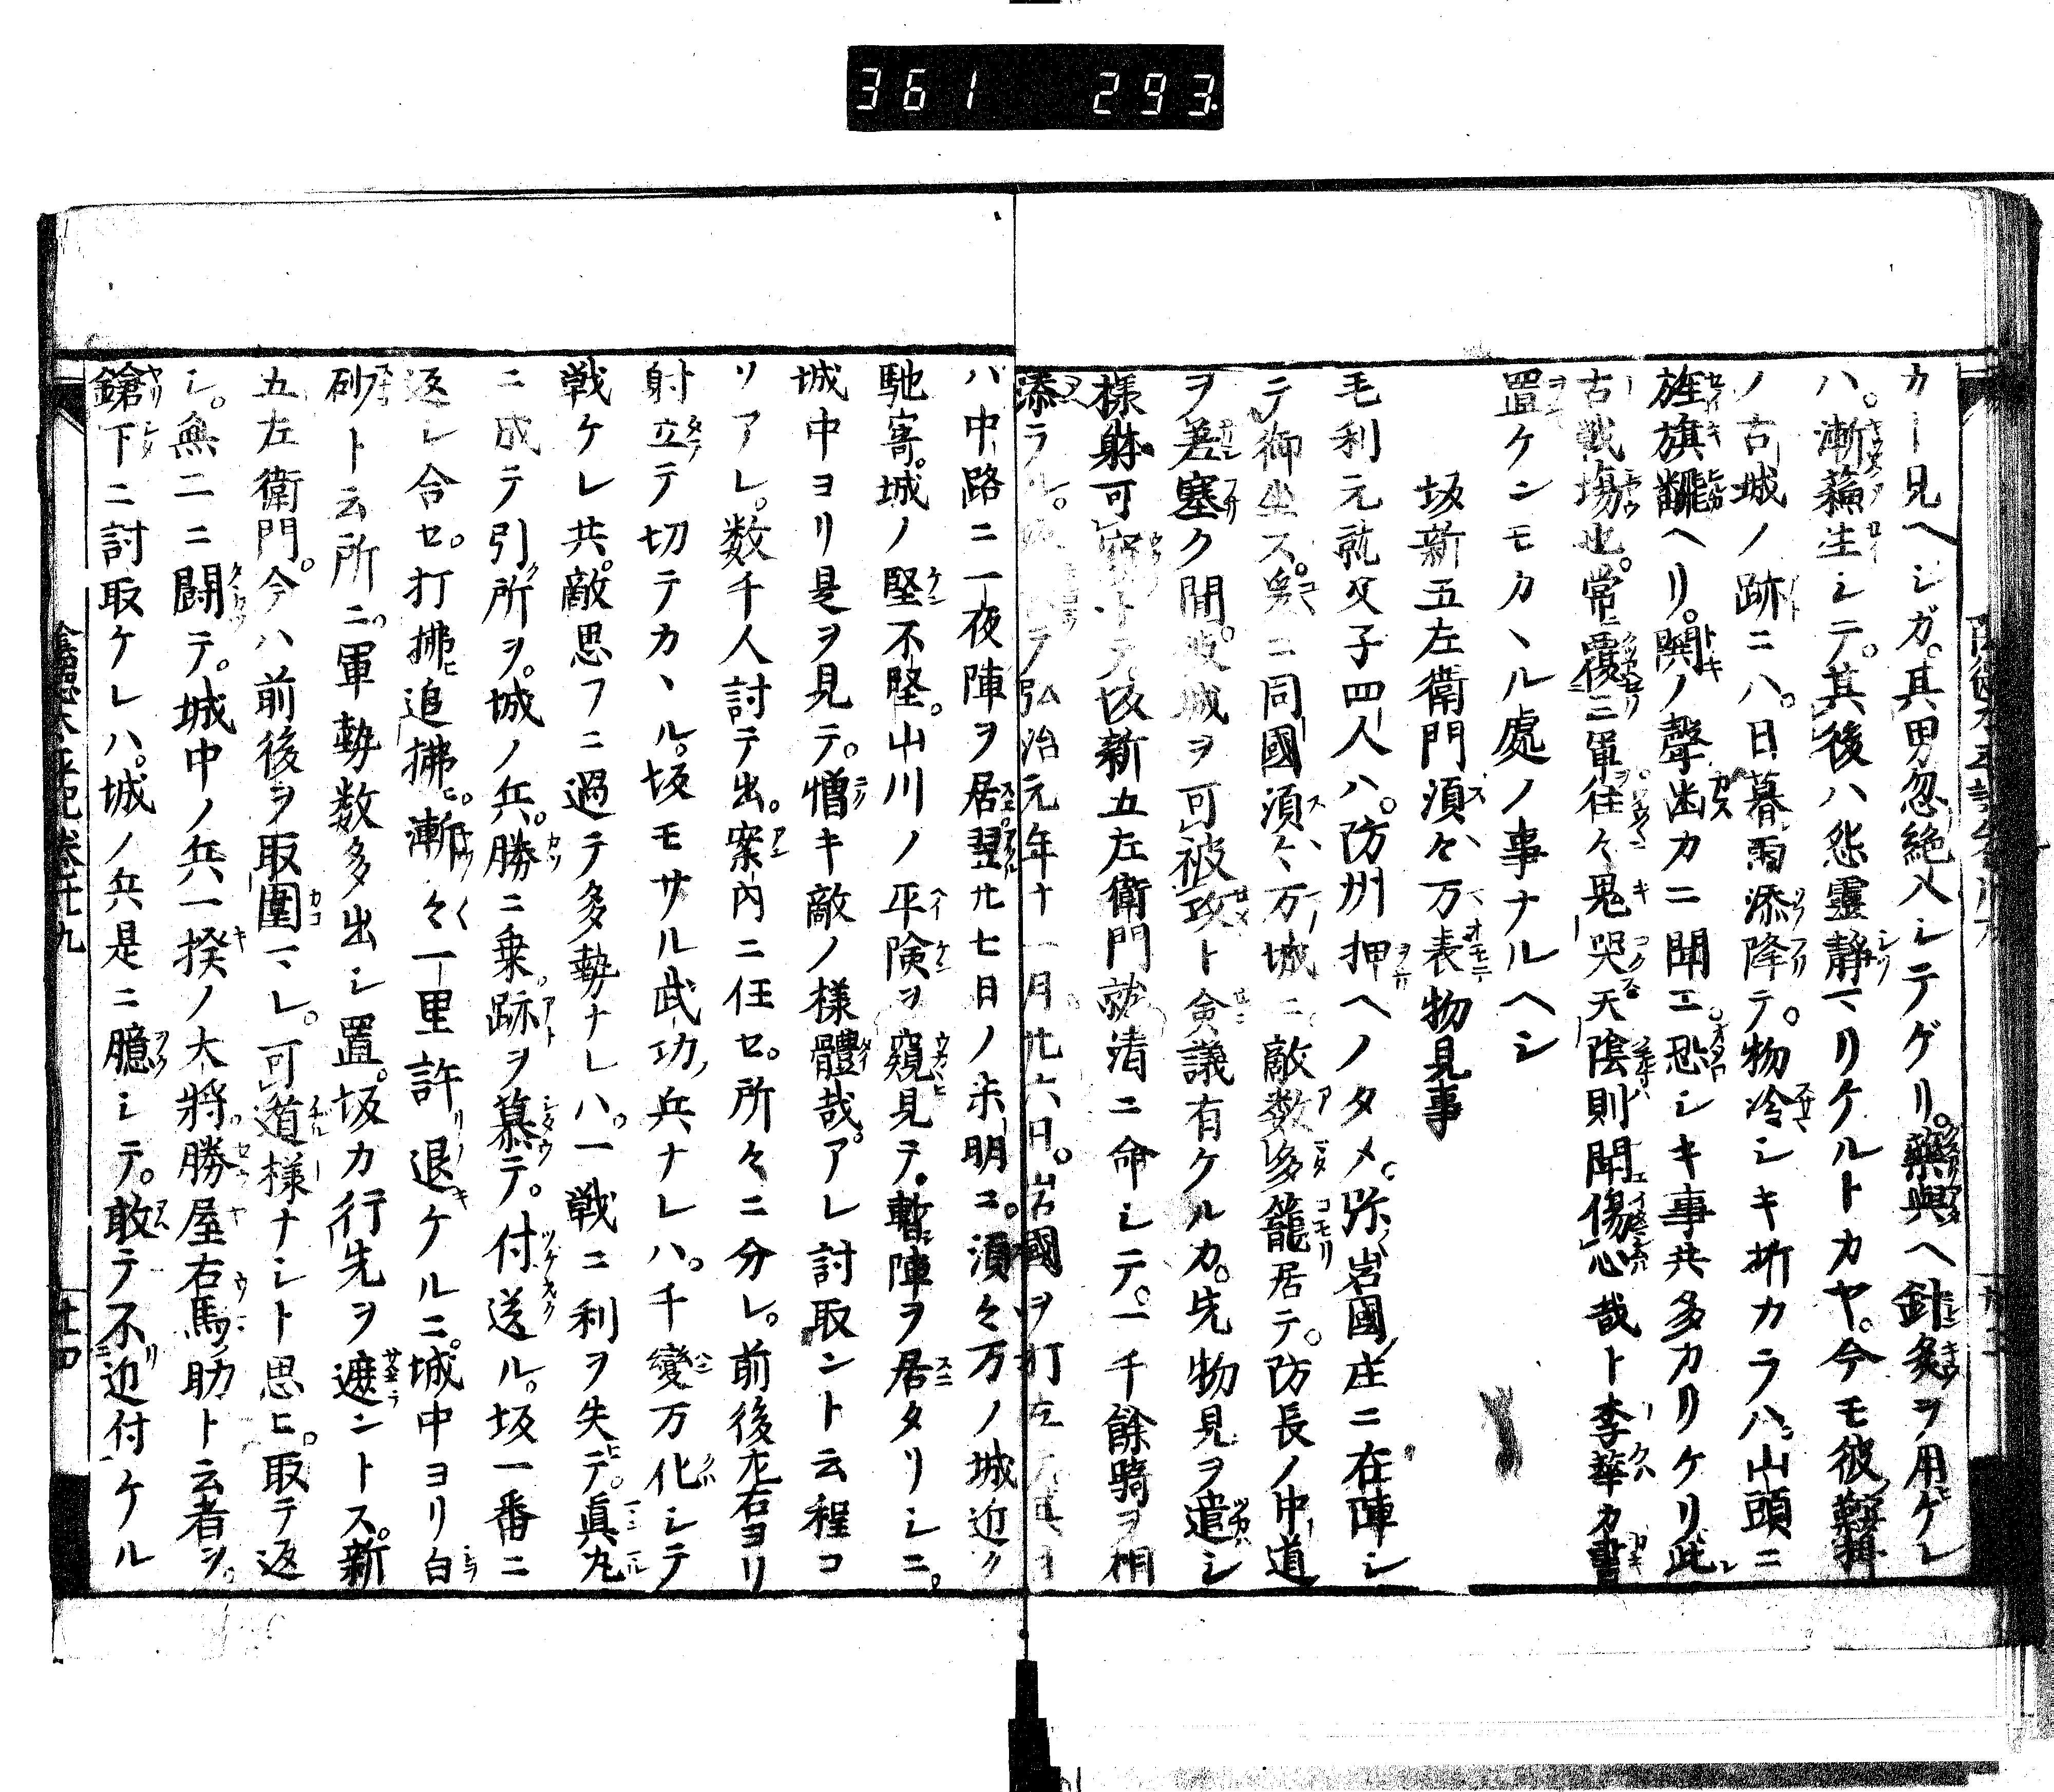 361 293
カニ見ヘシガ。其男忽絶入シテゲリ。藥與ヘ針灸ヲ用ケレ
ハ。漸蘇生シテ。其後ハ怨靈靜マリケルトカヤ。今モ彼鞍掛
ノ古城ノ跡ニハ。日暮雨添降テ。物冷シキ折カラハ。山頭ニ
旌旗飜ヘリ。鬨ノ聲幽カニ聞エ。恐シキ事共多カリケリ此
古戰塲也。常覆三軍往々鬼哭天陰則聞傷心哉ト李華カ書
置ケンモカヽル處ノ事ナルヘシ
坂新五左衛門須々万表物見事
毛利元就父子四人ハ。防州押ヘノタメ。弥岩國庄ニ在陣シ
テ御坐ス。爰ニ同國須々万城ニ敵数多籠居テ。防長ノ中道
ヲ差塞ク間。彼城ヲ可被攻ト僉議有ケルカ。先物見ヲ遣シ
様躰可トテ。坂新五左衛門就清ニ命シテ。一千餘騎ヲ相
添ラル。テ弘治元年十一月廿六日。岩國ヲ打立
ハ中路ニ一夜陣ヲ居翌廿七日ノ未明ニ。須々万ノ城近ク
馳寄。城ノ堅不堅。山川ノ平険ヲ窺見テ。暫陣ヲ居タリシニ。
城中ヨリ是ヲ見テ。憎キ敵ノ様體哉。アレ討取ントト云程コ
ソアレ。数千人討テ出。案内ニ任セ。所々ニ分レ。前後左右ヨリ
射立テ切テカヽル。坂モサル武功ノ兵ナレハ。千變万化シテ
戰ケレ共。敵思フニ過テ多勢ナレハ。一戰ニ利ヲ失テ。眞丸
ニ成テ引所ヲ。城ノ兵。勝ニ乗跡ヲ慕テ。付送ル。坂一番ニ
返レ合セ。打拂ヒ追拂ヒ。漸々一里許退ケルニ。城中ヨリ白
砂ト云所ニ。軍勢数多出シ置。坂カ行先ヲ遮ントス。新
五左衛門。今ハ前後ヲ取圍マレ。可遁様ナシト思ヒ。取テ返
シ。無二ニ闘テ。城中ノ兵一揆ノ大將勝屋右馬助ト云者ヲ。
鎗下ニ討取ケレハ。城ノ兵是ニ臆シテ。敢テ不近付ケル
陰德太平記卷廿九
廿四